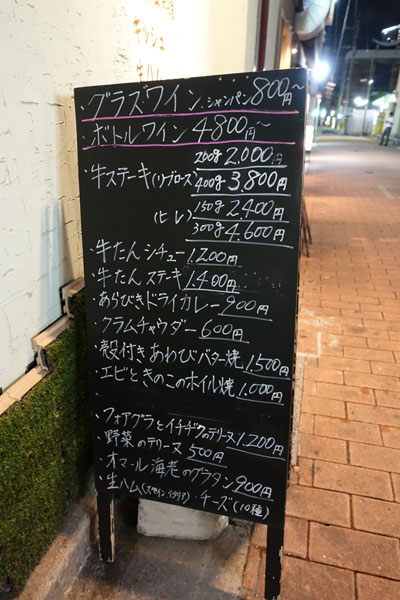 ・グラスワイン、シャンパン 800円〜
・ボトルワイン 4800円〜
200g 2,000円
・牛ステーキ(リブロース) 400g 3,800円
(ヒレ) 150g 2,400円
300g 4,600円
・牛たん シチュー 1,200円
・牛たん ステーキ 1,400円
・あらびきドライカレー 900円
・クラムチャウダー 600円
・殻付き あわびバター焼 1,500円
・エビときのこのホイル焼 1,000円
・フォアグラとイチヂクのテリーヌ 1,200円
・野菜のテリーヌ 500円
・オマール海老のグラタン 900円
・生ハム(スペイン イタリア)・チーズ(10種)